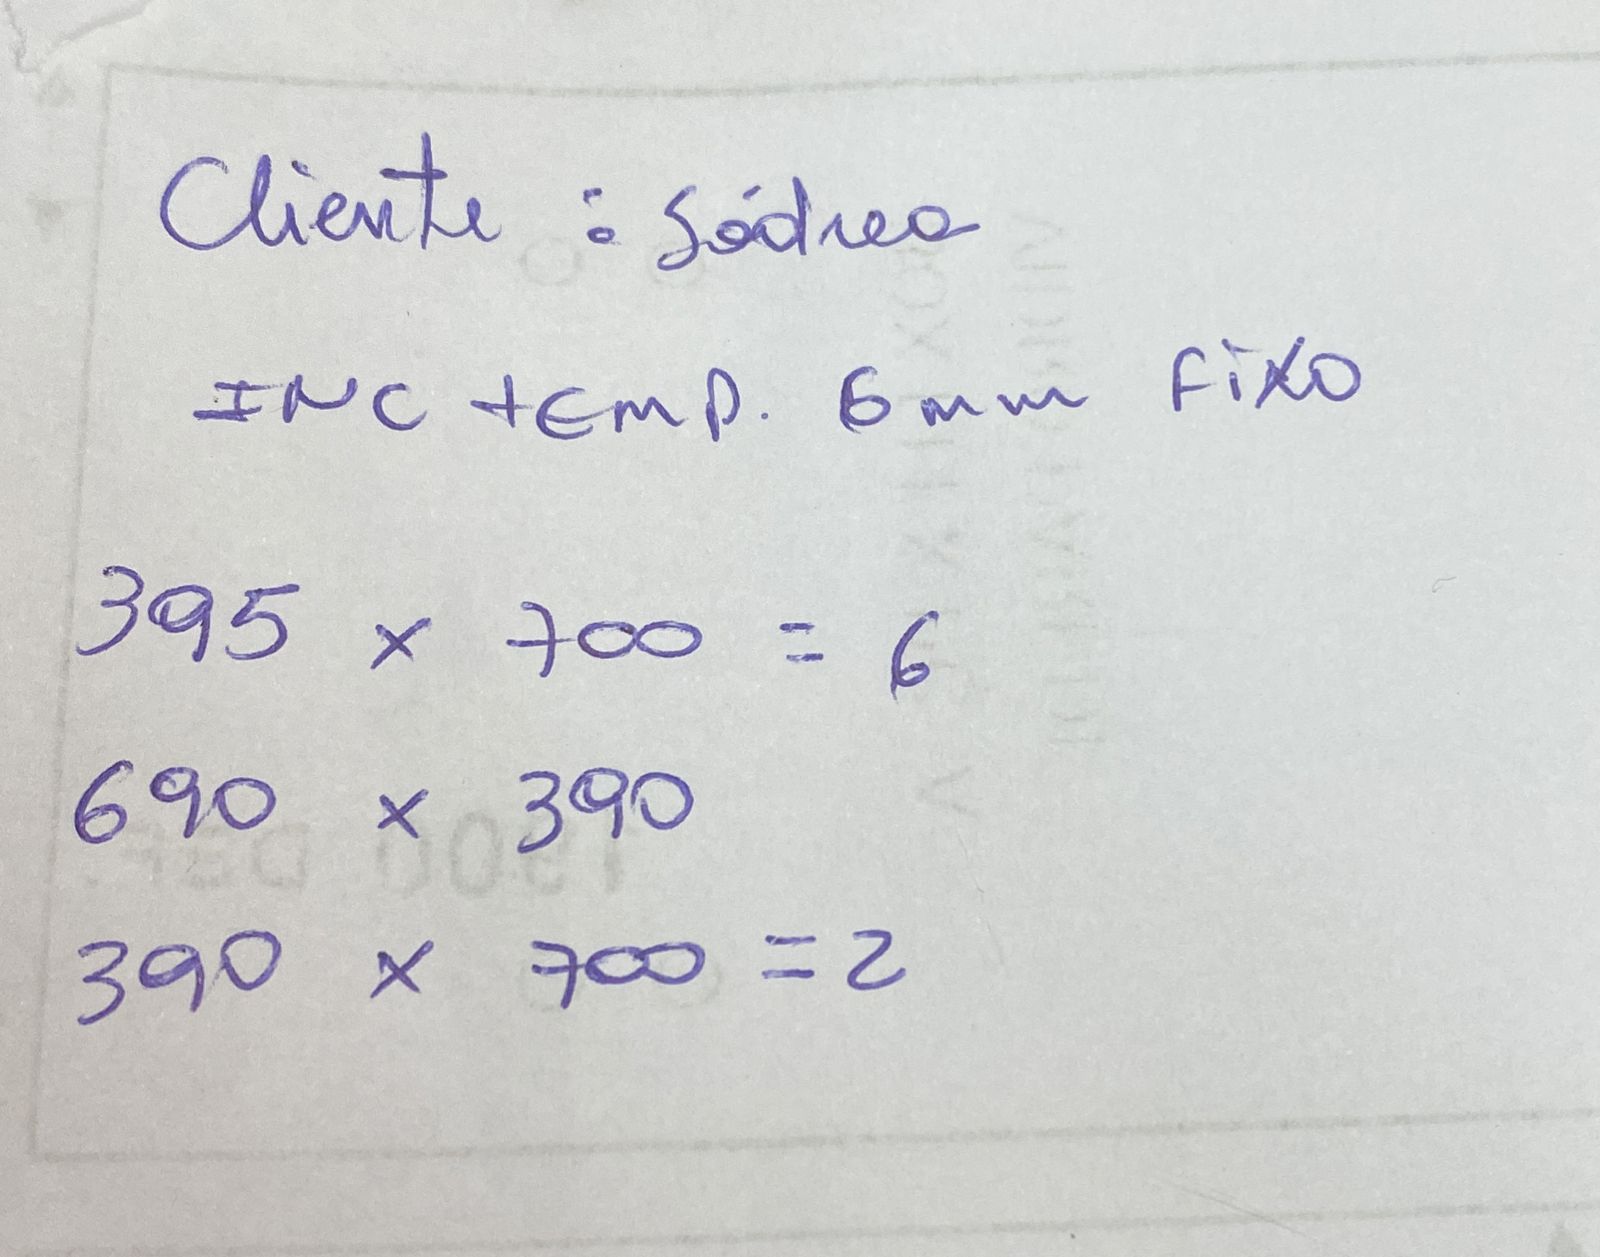 Cliente :
INC temp. 6mm Fixo
395 x 700 = 6
690 x 390
390 x 700 = 2